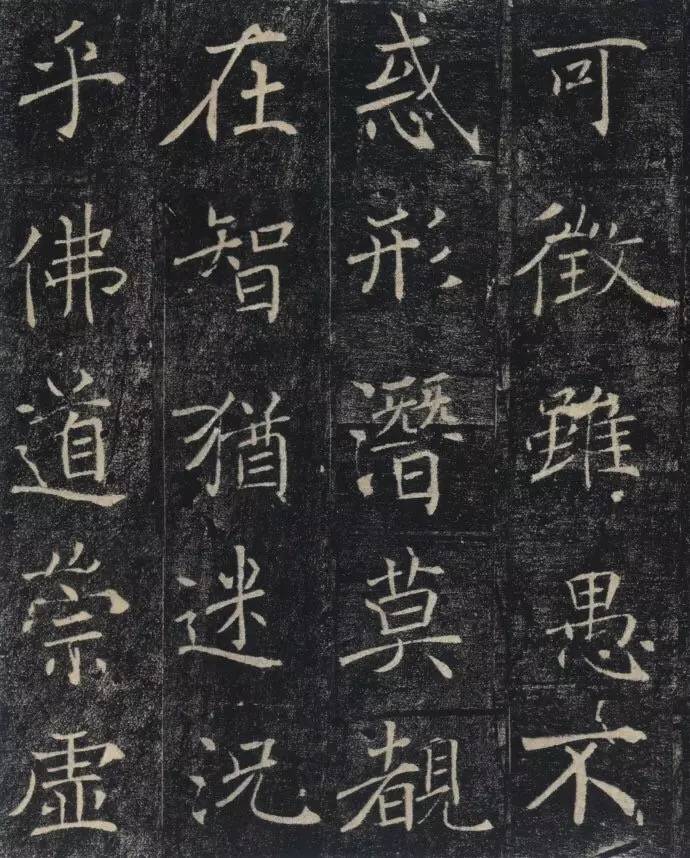 可徵雖愚不
惑形潛莫覩
在智猶迷况
乎佛道崇虛